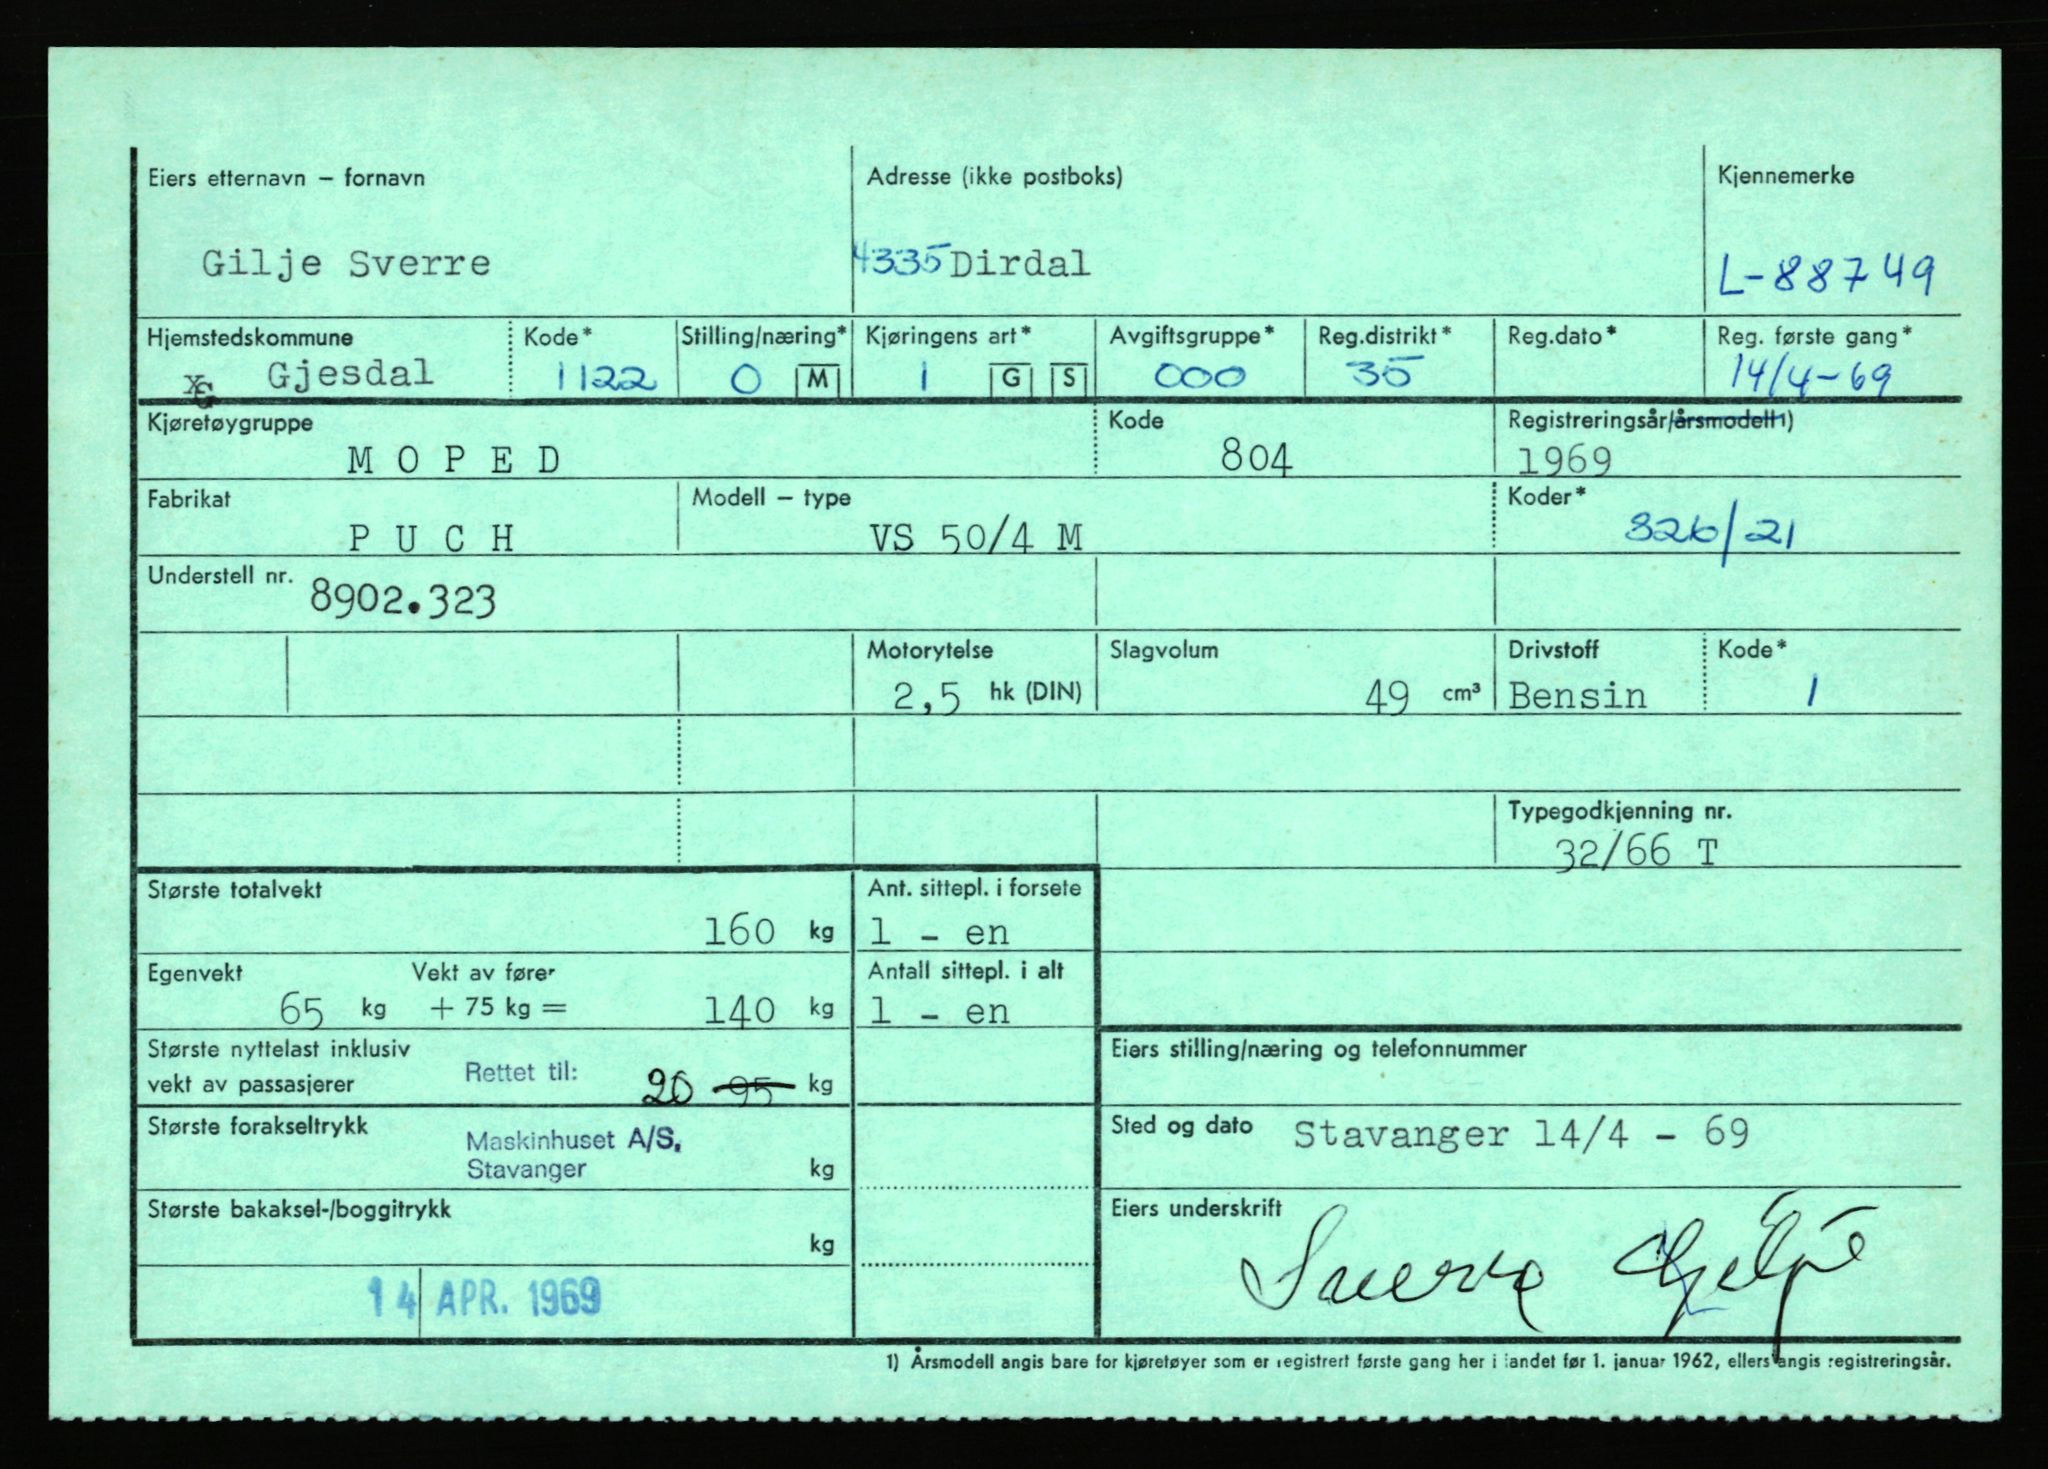 Eiers etternavn – fornavn
Adresse (ikke postboks)
Kjennemerke
Gilje Sverre
4335 Dirdal
L-88749
Hjemstedskommune
Kode*
Stilling/næring*
Kjøringens art*
Avgiftsgruppe*
Reg.distrikt*
Reg.dato*
Reg. første gang*
Gjesdal
1122
0 M
1 G S
000
35
14/4-69
Kjøretøygruppe
Kode
Registreringsår/årsmodell1)
M O P E D
804
1969
Fabrikat
Modell – type
Koder*
P U C H
VS 50/4 M
326/21
Understell nr.
8902.323
Motorytelse
Slagvolum
Drivstoff
Kode*
2,5 hk (DIN)
49 cm³
Bensin
1
Typegodkjenning nr.
32/66 T
Største totalvekt
Ant. sittepl. i forsete
160 kg
1 - en
Egenvekt
Vekt av fører
Antall sittepl. i alt
65 kg + 75 kg = 140 kg
1 - en
Største nyttelast inklusiv
vekt av passasjerer
Rettet til:
20 95 kg
Eiers stilling/næring og telefonnummer
Største forakseltrykk
Maskinhuset A/S.
Stavanger
kg
Sted og dato Stavanger 14/4 - 69
Største bakaksel-/boggitrykk
kg
Eiers underskrift
Sverre Gilje
14 APR. 1969
1) Årsmodell angis bare for kjøretøyer som er registrert første gang her i landet før 1. januar 1962, ellers angis registreringsår.